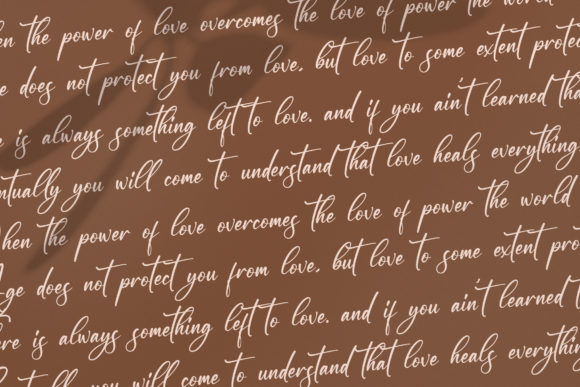 en the power of love overcomes the love of power the world
e does not protect you from love. but love to some extent protec
e is always something left to love. and if you ain't learned tha
ntually you will come to understand that love heals everything
hen the power of love overcomes the love of power the world
ge does not protect you from love. but love to some extent pro
ere is always something left to love. and if you ain't learned t
you will come to understand that love heals everythin